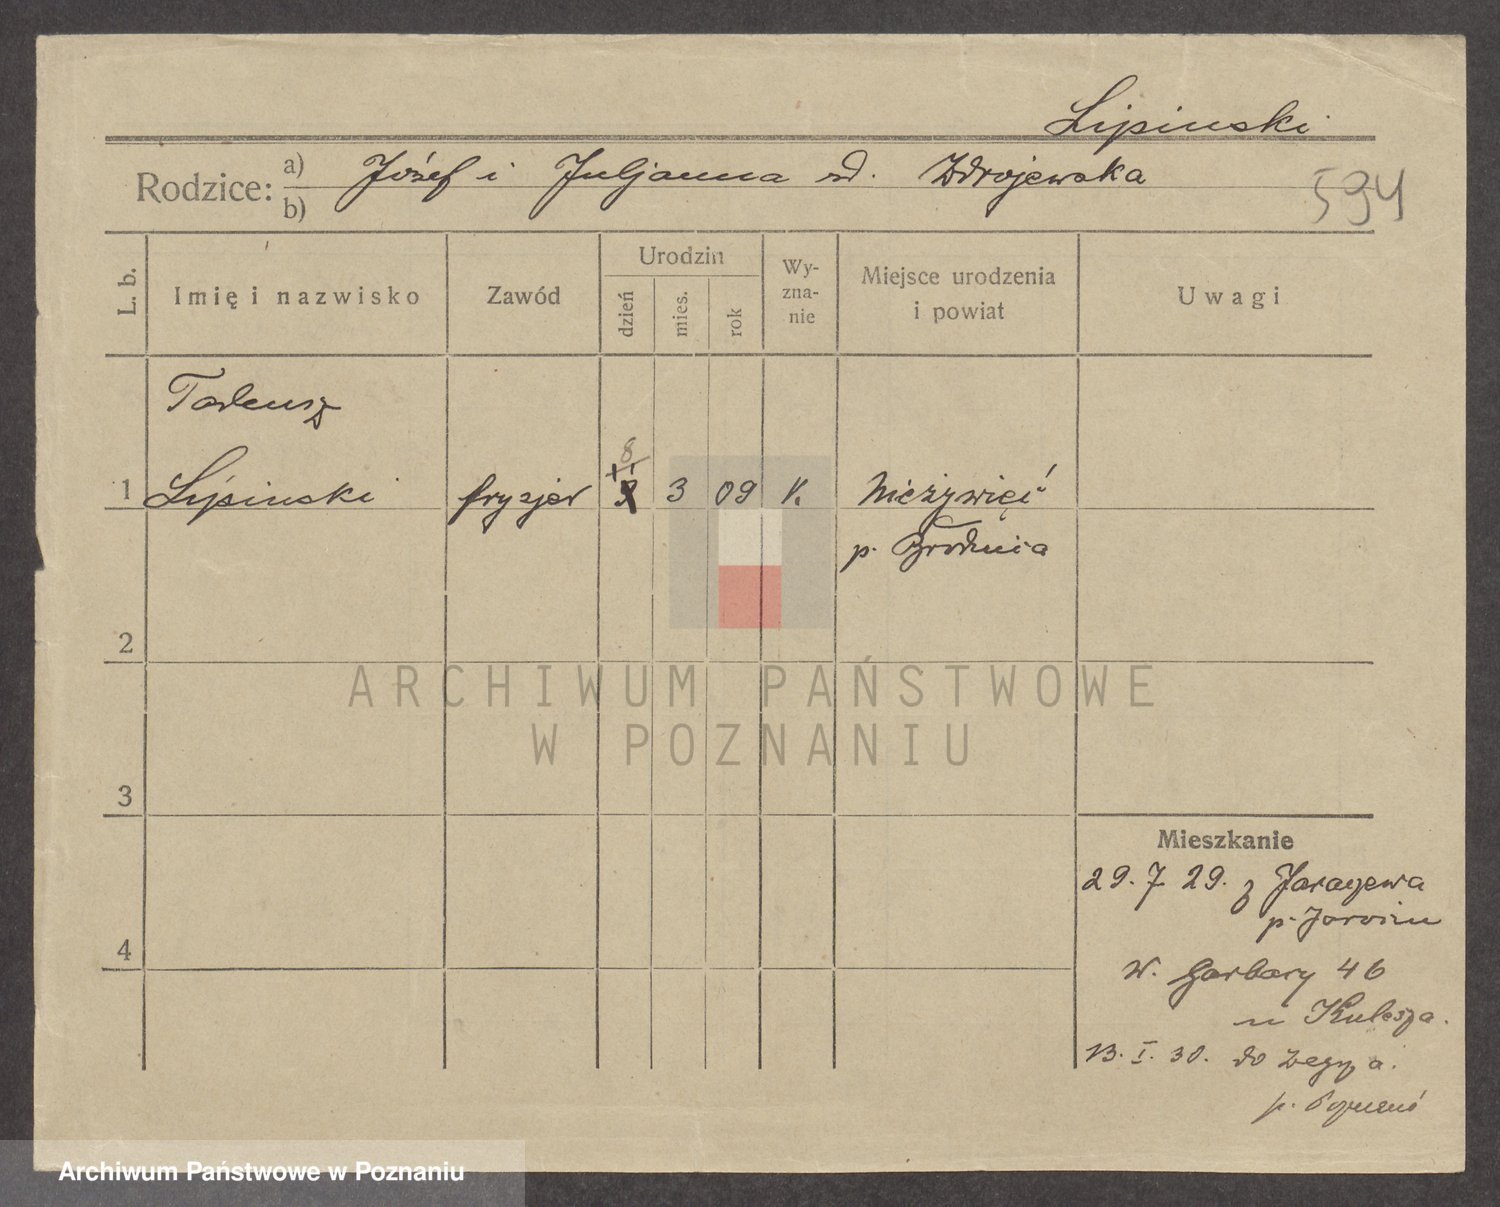 Lipinski
Rodzice: a) b) Józef i Juljanna zd. Zdrojewska
594
L. b.
Imię i nazwisko
Zawód
Urodzin
dzień
mies.
rok
Wy-
zna-
nie
Miejsce urodzenia
i powiat
Uwagi
Tadeusz
8
1 Lipinski fryzjer 3 09 k. Nieżywięć
p. Brodnica
2
3
4
Mieszkanie
29. 7. 29. z Jaraczewa
p. Jarocin
w. Garbary 46
u Kulesza.
13. I. 30. do
p. Poznań
ARCHIWUM PAŃSTWOWE
W POZNANIU
Archiwum Państwowe w Poznaniu